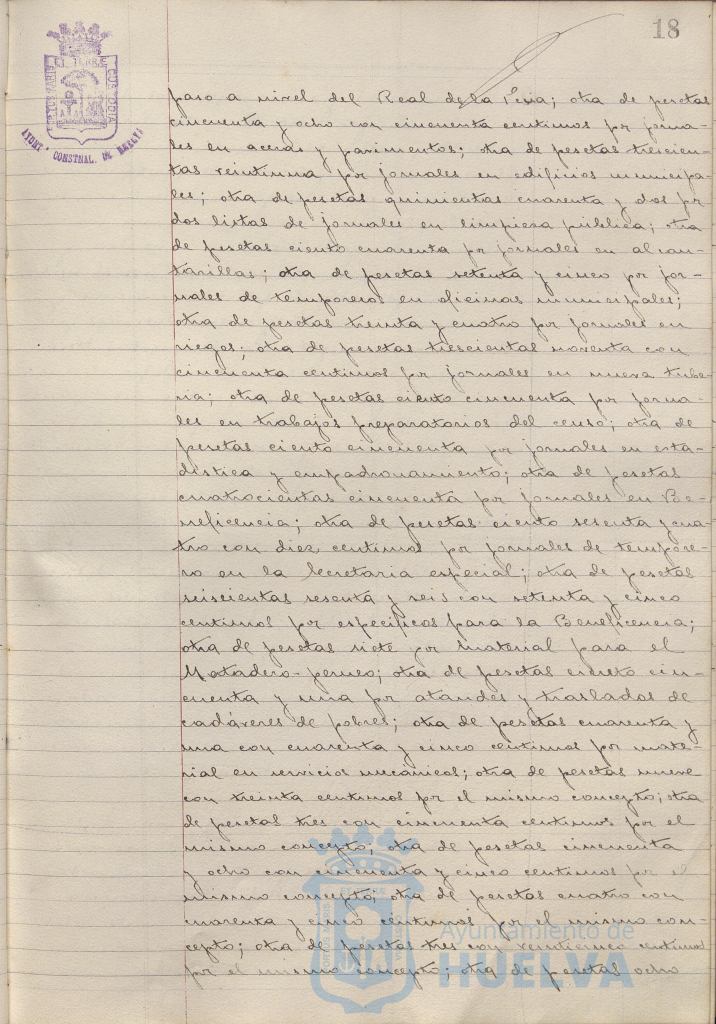 18
PORTUS MARIS
ET TERRÆ
CUSTODIA
AYUNT.º CONSTNAL. DE HUELVA
paso a nivel del Real de la Feria; otra de pesetas
cincuenta y ocho con cincuenta centimos por jorna-
les en aceras y pavimentos; otra de pesetas trescien-
tas veintiuna por jornales en edificios municipa-
les; otra de pesetas quinientas cuarenta y dos por
dos listas de jornales en limpieza pública; otra
de pesetas ciento cuarenta por jornales en alcan-
tarillas; otra de pesetas setenta y cinco por jor-
nales de temporeros en oficinas municipales;
otra de pesetas treinta y cuatro por jornales en
riegos; otra de pesetas trescientas noventa con
cincuenta centimos por jornales en nueva tube-
ria; otra de pesetas ciento cincuenta por jorna-
les en trabajos preparatorios del censo; otra de
pesetas ciento cincuenta por jornales en esta-
distica y empadronamiento; otra de pesetas
cuatrocientas cincuenta por jornales en Be-
neficencia; otra de pesetas ciento sesenta y cua-
tro con diez centimos por jornales de tempore-
ro en la Secretaria especial; otra de pesetas
seiscientas sesenta y seis con setenta y cinco
centimos por especificos para la Beneficencia;
otra de pesetas siete por material para el
Matadero-perneo; otra de pesetas ciento cin-
cuenta y una por ataudes y traslados de
cadáveres de pobres; otra de pesetas cuarenta y
una con cuarenta y cinco centimos por mate-
rial en servicios mecánicos; otra de pesetas nueve
con treinta centimos por el mismo concepto; otra
de pesetas tres con cincuenta centimos por el
mismo concepto; otra de pesetas cincuenta
y ocho con cincuenta y cinco centimos por el
mismo concepto; otra de pesetas cuatro con
cuarenta y cinco centimos por el mismo con-
cepto; otra de pesetas tres con veinticinco centimos
por el mismo concepto; otra de pesetas ocho
Ayuntamiento de
HUELVA